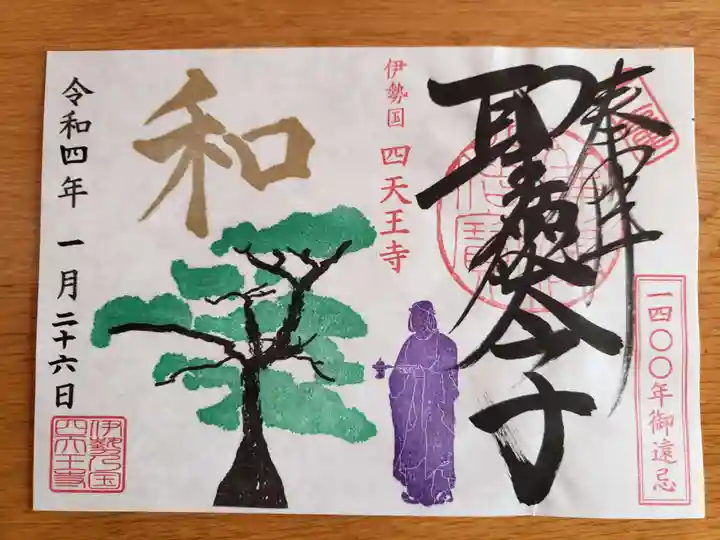 奉拝
一四〇〇年御遠忌
聖徳太子
伊勢国 四天王寺
和
令和四年 一月二十六日
伊勢乃国
四天王寺